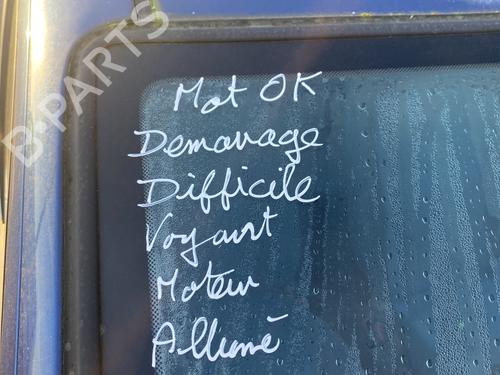 B-PARTS
Mot OK
Demarage
Difficile
Voyant
Moteur
Allumé